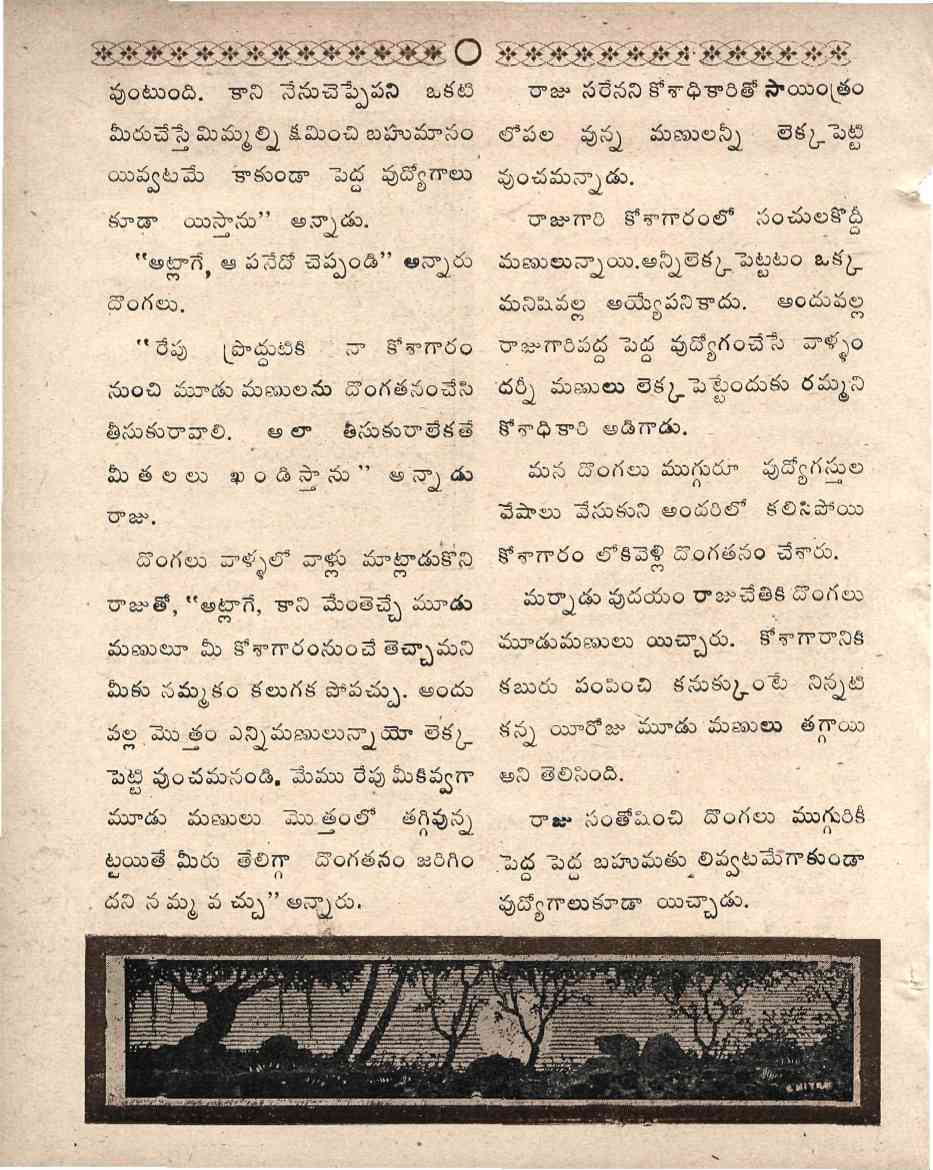 వుంటుంది. కాని నేనుచెప్పేపని ఒకటి
మీరుచేస్తే మిమ్మల్ని క్షమించి బహుమానం
యివ్వటమే కాకుండా పెద్ద వుద్యోగాలు
కూడా యిస్తాను” అన్నాడు.
“అట్లాగే, ఆ పనేదో చెప్పండి” అన్నారు
దొంగలు.
“రేపు ప్రొద్దుటికి నా కోశాగారం
నుంచి మూడు మణులను దొంగతనంచేసి
తీసుకురావాలి. అలా తీసుకురాలేకతే
మీ తలలు ఖండిస్తాను” అన్నాడు
రాజు.
దొంగలు వాళ్ళలో వాళ్లు మాట్లాడుకొని
రాజుతో, “అట్లాగే, కాని మేంతెచ్చే మూడు
మణులూ మీ కోశాగారంనుంచే తెచ్చామని
మీకు నమ్మకం కలుగక పోవచ్చు. అందు
వల్ల మొత్తం ఎన్నిమణులున్నాయో లెక్క
పెట్టి వుంచమనండి. మేము రేపు మీకివ్వగా
మూడు మణులు మొత్తంలో తగ్గివున్న
ట్టయితే మీరు తేలిగ్గా దొంగతనం జరిగిం
దని నమ్మవచ్చు” అన్నారు.
రాజు సరేనని కోశాధికారితో సాయింత్రం
లోపల వున్న మణులన్నీ లెక్కపెట్టి
వుంచమన్నాడు.
రాజుగారి కోశాగారంలో సంచులకొద్దీ
మణులున్నాయి.అన్నీలెక్కపెట్టటం ఒక్క
మనిషివల్ల అయ్యేపనికాదు. అందువల్ల
రాజుగారిపద్ద పెద్ద వుద్యోగంచేసే వాళ్ళం
దర్నీ మణులు లెక్కపెట్టేందుకు రమ్మని
కోశాధికారి అడిగాడు.
మన దొంగలు ముగ్గురూ వుద్యోగస్తుల
వేషాలు వేసుకుని అందరిలో కలిసిపోయి
కోశాగారం లోకివెళ్లి దొంగతనం చేశారు.
మర్నాడు వుదయం రాజుచేతికి దొంగలు
మూడుమణులు యిచ్చారు. కోశాగారానికి
కబురు పంపించి కనుక్కుంటే నిన్నటి
కన్న యీరోజు మూడు మణులు తగ్గాయి
అని తెలిసింది.
రాజు సంతోషించి దొంగలు ముగ్గురికీ
పెద్ద పెద్ద బహుమతు లివ్వటమేగాకుండా
వుద్యోగాలుకూడా యిచ్చాడు.